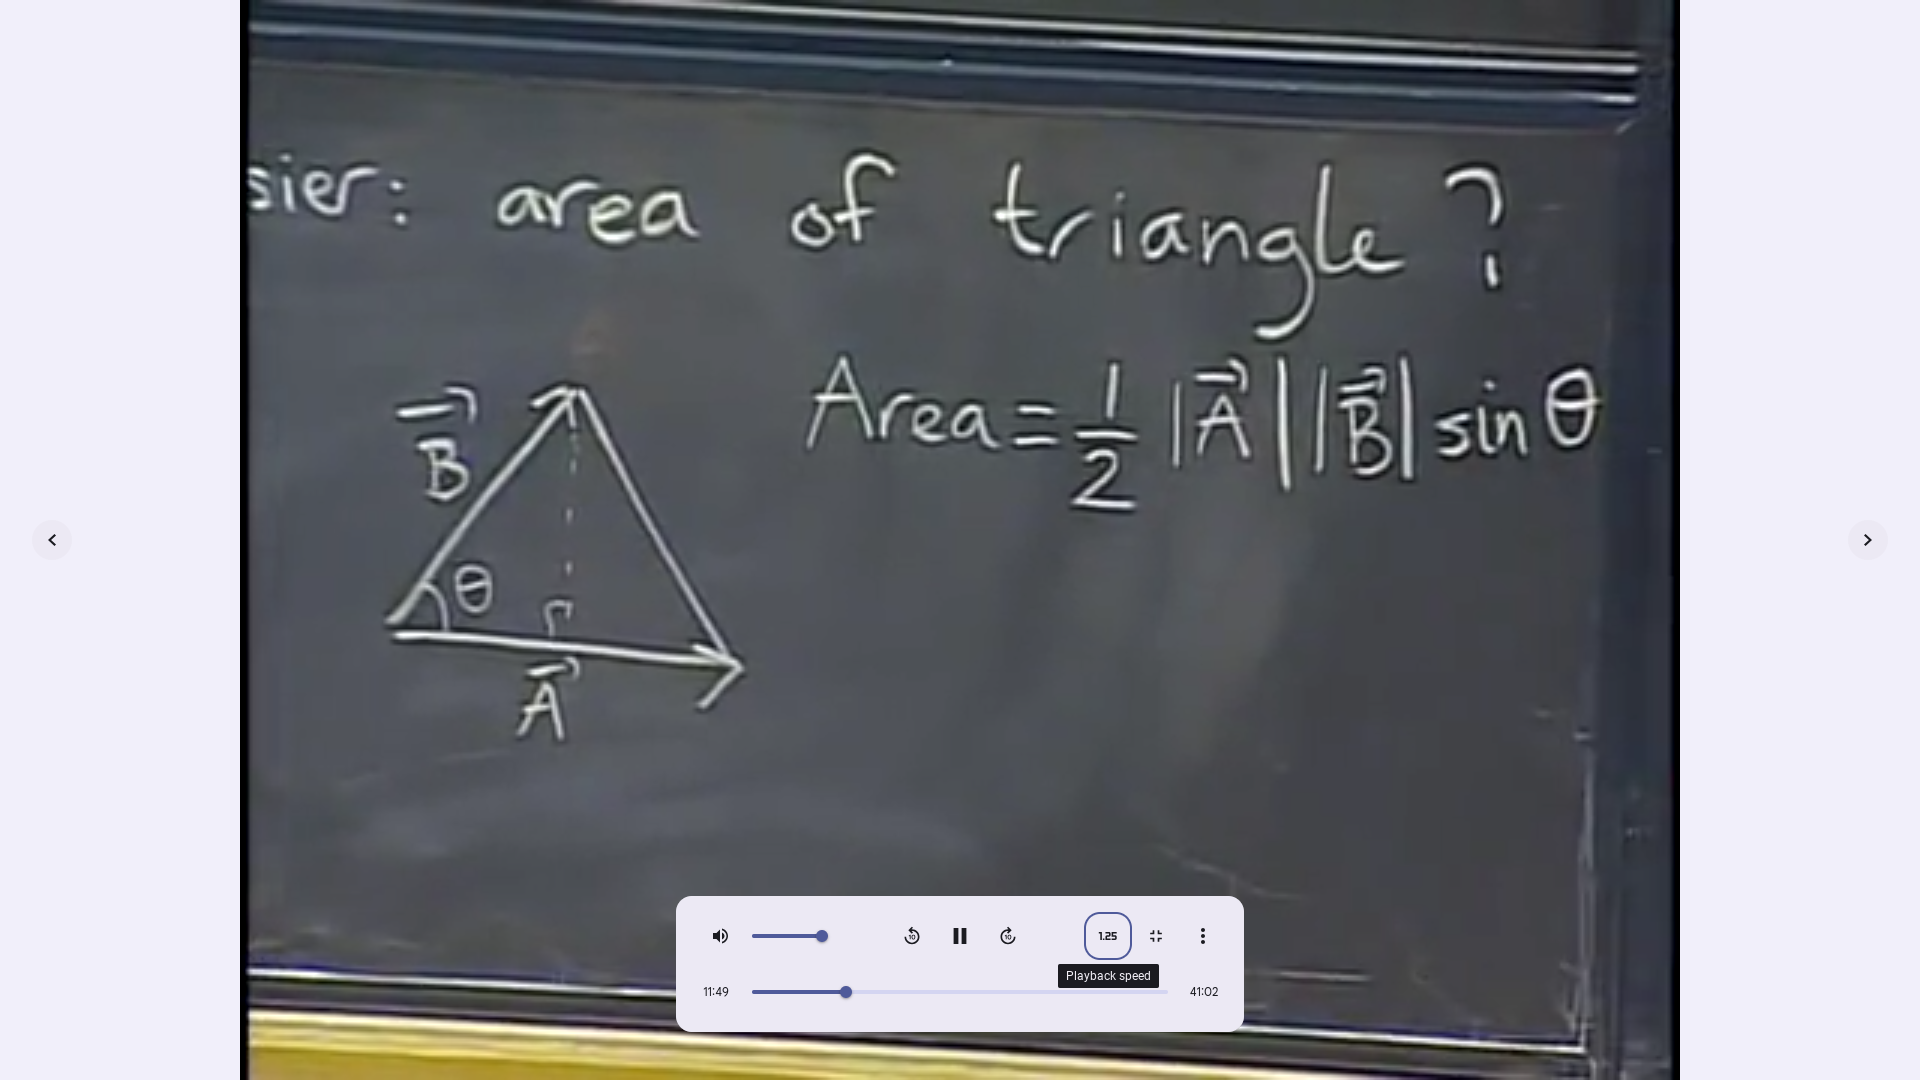 sier: area of triangle?
Area = 1/2 |A⃗| |B⃗| sin θ
B⃗
θ
A⃗
10
10
1.25
Playback speed
11:49
41:02